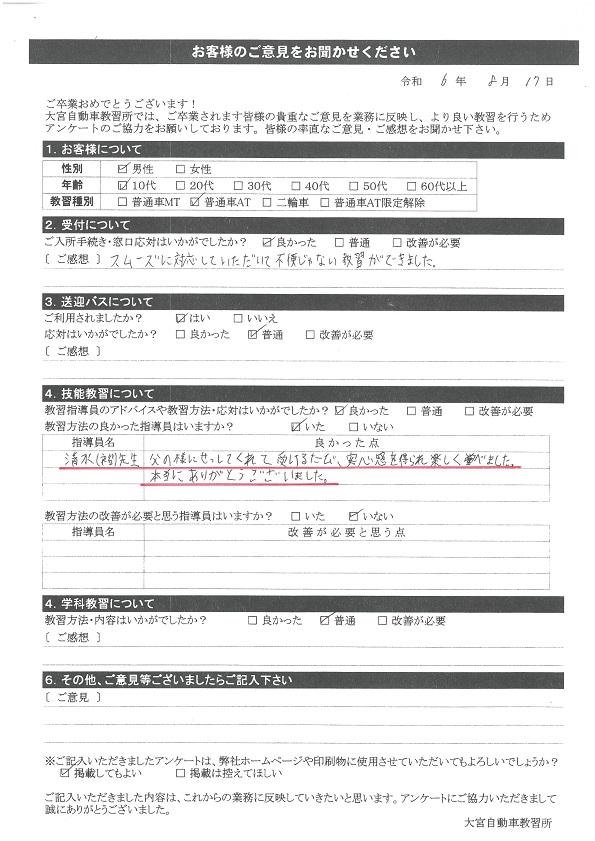 お客様のご意見をお聞かせください
令和 6 年 8 月 17 日
ご卒業おめでとうございます！
大宮自動車教習所では、ご卒業されます皆様の貴重なご意見を業務に反映し、より良い教習を行うため
アンケートのご協力をお願いしております。皆様の率直なご意見・ご感想をお聞かせ下さい。
1. お客様について
性別 ☑男性 □女性
年齢 ☑10代 □20代 □30代 □40代 □50代 □60代以上
教習種別 □普通車MT ☑普通車AT □二輪車 □普通車AT限定解除
2. 受付について
ご入所手続き・窓口応対はいかがでしたか？ ☑良かった □普通 □改善が必要
〔ご感想〕 スムーズに対応していただいて不便じゃない教習ができました。
3. 送迎バスについて
ご利用されましたか？ ☑はい □いいえ
応対はいかがでしたか？ □良かった ☑普通 □改善が必要
〔ご感想〕
4. 技能教習について
教習指導員のアドバイスや教習方法・応対はいかがでしたか？ ☑良かった □普通 □改善が必要
教習方法の良かった指導員はいますか？ ☑いた □いない
指導員名 良かった点
清水先生 父の様にせっしてくれて受けるたびに、安心感を得られ楽しく学べました。
本当にありがとうございました。
教習方法の改善が必要と思う指導員はいますか？ □いた ☑いない
指導員名 改善が必要と思う点
4. 学科教習について
教習方法・内容はいかがでしたか？ □良かった ☑普通 □改善が必要
〔ご感想〕
6. その他、ご意見等ございましたらご記入下さい
〔ご意見〕
※ご記入いただきましたアンケートは、弊社ホームページや印刷物に使用させていただいてもよろしいでしょうか？
☑掲載してもよい □掲載は控えてほしい
ご記入いただきました内容は、これからの業務に反映していきたいと思います。アンケートにご協力いただきまして
誠にありがとうございました。
大宮自動車教習所